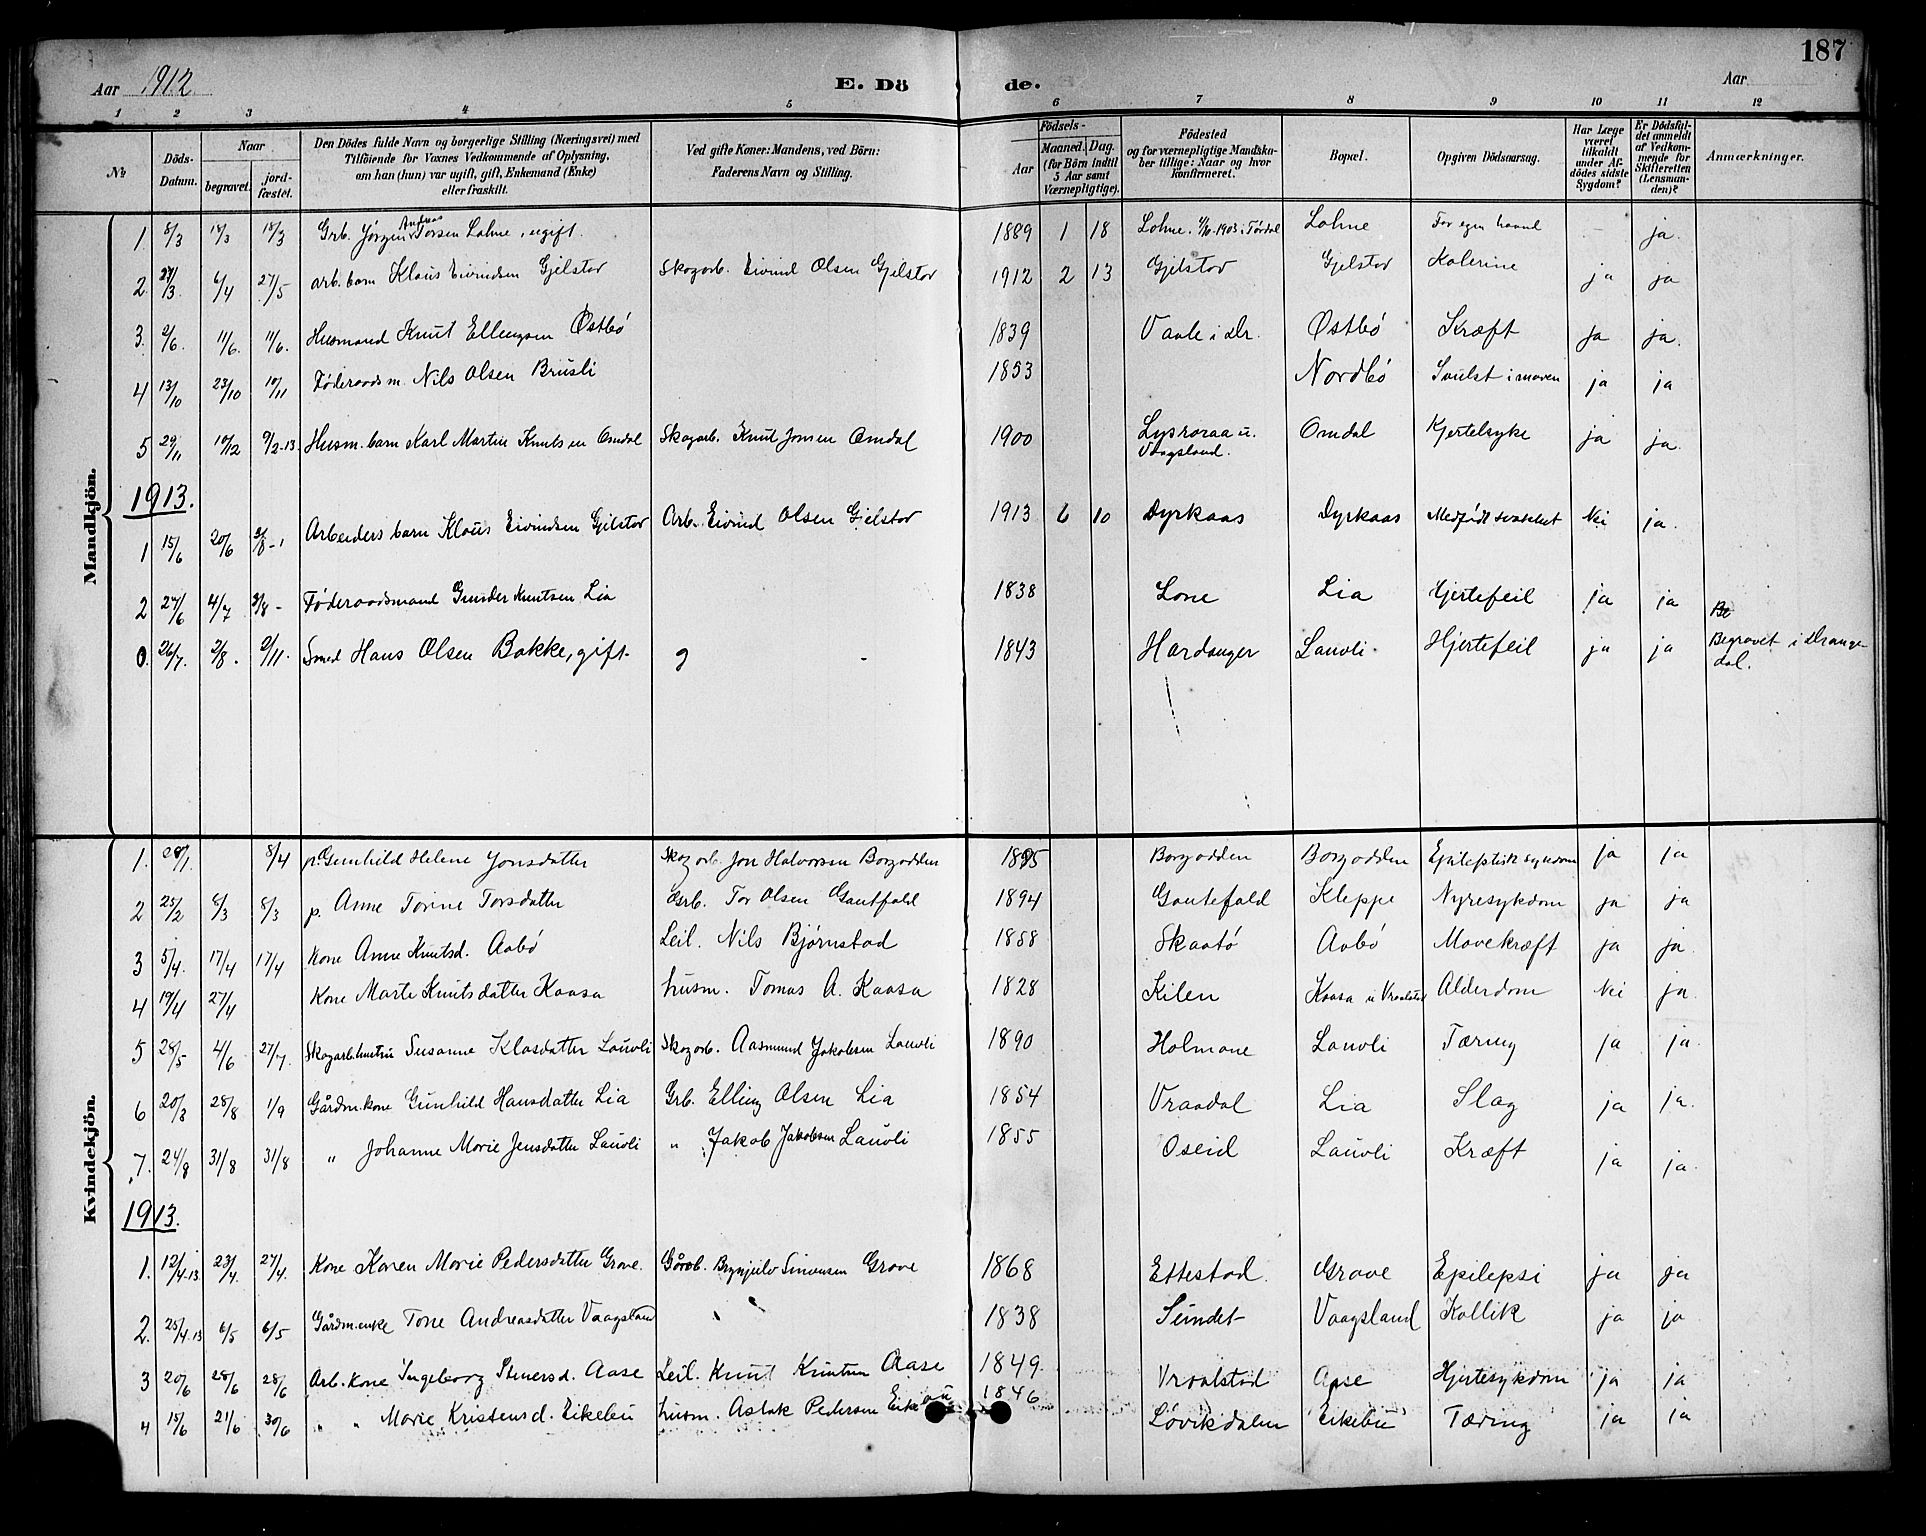 187
Aar 1912. E. Dö de. Aar
1 2 3 4 5 6 7 8 9 10 11 12
№ Döds-Datum. Naar begravet. jordfæstet. Den Dödes fulde Navn og borgerlige Stilling (Næringsvei) med Tilföiende for Voxnes Vedkommende af Oplysning, om han (hun) var ugift, gift, Enkemand (Enke) eller fraskilt. Ved gifte Koner: Mandens, ved Börn: Faderens Navn og Stilling. Födsels- Aar Maaned. Dag. (for Börn indtil 5 Aar samt Værnepligtige). Födested og for værnepligtige Mandskaber tillige: Naar og hvor konfirmeret. Bopæl. Opgiven Dödsaarsag. Har Læge været tilkaldt under Afdödes sidste Sygdom? Er Dödsfaldet anmeldt af Vedkommende for Skifteretten (Lensmanden)? Anmærkninger.
Mandkjön.
1 8/3 18/3 18/3 Grb. Jörgen Andreas Torsen Lohne, ugift. 1889 1 18 Lohne. 1903 i Tørdal Lohne For egen haand – ja.
2. 27/3. 6/4 27/5 arb. barn Klaus Eivindsen Gjelstad Skogarb. Eivind Olsen Gjelstad 1912 2 13 Gjelstad Gjelstad Kolerine ja ja
3. 2/6. 11/6. 11/6. Husmand Knut Ellingsen Østbö 1839 Vaale i Dr. Østbö Kræft ja ja.
4 13/10 23/10 10/11 Föderaadsm. Nils Olsen Brusli 1853 Nordbö Svulst i maven ja ja
5 29/11 10/12 9/2-13. Husm. barn Karl Martin Knutsen Omdal Skogarb. Knut Jonsen Omdal 1900 Lyseraa u. Vaagsland. Omdal Kjertelsyke ja ja.
1913.
1 15/6 20/6 3/8 - Arbeiders barn Klaus Eivindsen Gjelstad Arb. Eivind Olsen Gjelstad 1913 6 10 Dyrkaas Dyrkaas Medfödt svakhet Nei ja.
2 27/6 4/7 3/8 - Föderaadsmand Gunder Knutsen Lia 1838 Lone Lia Hjertefeil ja ja
0. 26/7. 2/8. 2/11. Smed Hans Olsen Bakke, gift. 1843 Hardanger Lauvli Hjertefeil ja ja Begravet i Drangedal.
Kvindekjön.
1. 28/1. 8/4 p. Gunhild Helene Jonsdatter Skogarb. Jon Halvorsen Borgodden 1895 Borgodden Borgodden Epileptisk sykdom ja ja
2 25/2 8/3 8/3 p. Anne Torine Torsdatter Grb. Tor Olsen Gautfald 1894 Gautefald Kleppe Nyresykdom ja ja
3 5/4. 17/4 17/4 Kone Anne Knutsd. Aabö Leil. Nils Bjørnstad 1858 Skaatö Aabö Mavekræft ja ja.
4 19/4 27/4 Kone Marte Knutsdatter Kaasa husm. Tomas A. Kaasa 1828 Kilen Kaasa u Vraalstad Alderdom Nei ja.
5 28/5 4/6 27/7. Skogarb. hustru Susanne Klasdatter Lauvli Skogarb. Aasmund Jakobsen Lauvli 1890 Holmane Lauvli Tæring ja ja.
6 20/3 28/8 1/9 Gårdm. kone Gunhild Hansdatter Lia Grb. Elling Olsen Lia 1854 Vraadal Lia Slag ja ja.
7. 24/8 31/8 31/8 " Johanne Marie Jensdatter Lauvli " Jakob Jakobsen Lauvli 1855 Oseid Lauvli Kræft ja ja.
1913.
1. 12/4.13. 23/4. 27/4. Kone Karen Marie Pedersdatter Grave. Gårdb. Brynjulv Simonsen Grave 1868 Ettestad. Grave Epilepsi ja ja
2. 25/4.13 6/5 6/5 Gårdm. enke Tone Andreasdatter Vaagsland 1838 Sundet Vaagsland Kollik ja ja
3 20/6 28/6 28/6 Arb. kone Ingeborg Stenersd. Aase Leil. Knut Knutsen Aase 1849. Vraalstad Aase Hjertesykdom ja ja
4 15/6 21/6 30/6 " " Marie Kristensd. Eikebu husm. Aslak Pedersen Eikebu 1846 Løvikdalen Eikebu Tæring ja ja